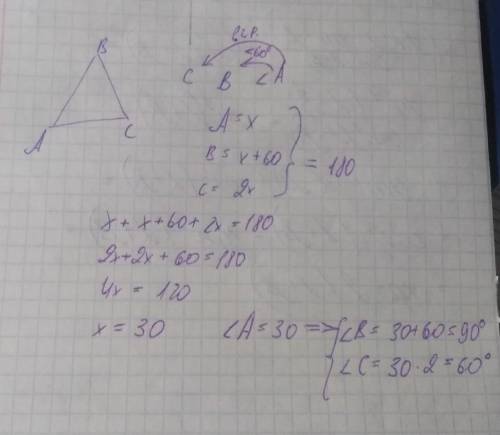 B
A
C
в 2 р.
< 60°
C B ∠A
A = x
B = x + 60
C = 2x
= 180
x + x + 60 + 2x = 180
2x + 2x + 60 = 180
4x = 120
x = 30 ∠A = 30 => ∠B = 30 + 60 = 90°
∠C = 30 · 2 = 60°